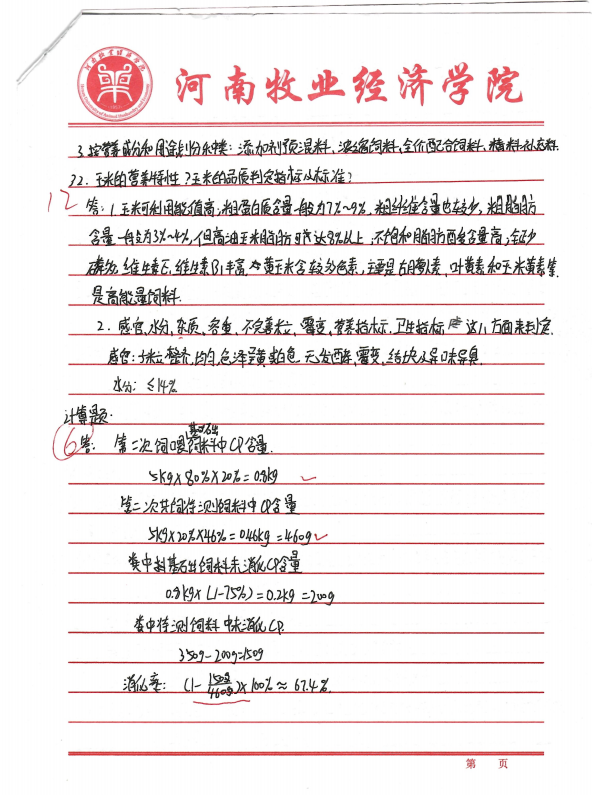 河南牧业经济学院
3.按营养成分和用途划分种类：添加剂预混料、浓缩饲料、全价配合饲料、精料补充料.
32.玉米的营养特性？玉米的品质判定指标以标准？
12
答：1.玉米可利用能值高，粗蛋白质含量一般为7%~9%，粗纤维含量也较少，粗脂肪
含量一般为3%~4%，但高油玉米脂肪可达8%以上，不饱和脂肪酸含量高；钙少
磷多，维生素E、维生素B1丰富，黄玉米含较多色素，主要是β-胡萝卜素、叶黄素和玉米黄素等
是高能量饲料.
2.感官、水分、杂质、容重、不完善粒、霉变、营养指标、卫生指标 这八方面来判定.
感官：籽粒整齐、均匀，色泽呈黄或白色，无发酵、霉变、结块及异味异臭.
水分：≤14%
计算题.
6
答：第二次饲喂基础饲料中CP含量.
5kg×80%×20%=0.8kg
第二次共饲待测饲料中CP含量
5kg×20%×46%=0.46kg=460g
粪中基础饲料未消化CP含量
0.8kg×(1-75%)=0.2kg=200g
粪中待测饲料中未消化CP.
350g-200g=150g
消化率：(1-150g/460g)×100%≈67.4%.
第 页